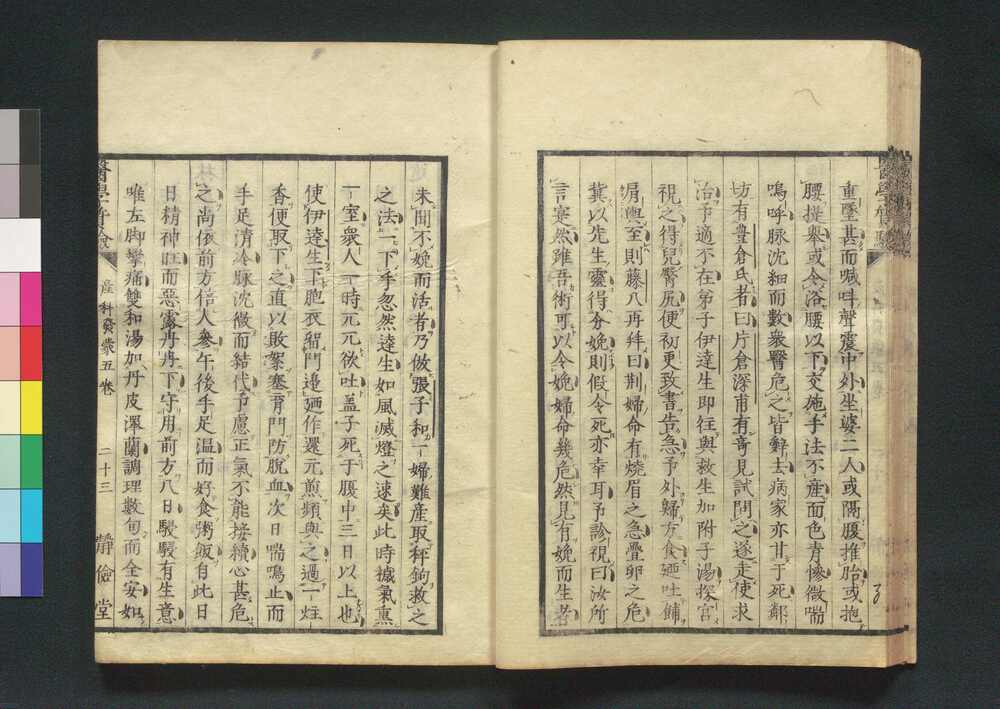 重墜甚而喊呌聲震中外坐婆二人或隔腹推胎或抱
腰提舉或令浴腰以下交施手法不産而面色青慘微喘
嗚呼脉沈細而數衆醫危之皆辭去病家亦甘于死鄰
坊有豊倉氏者曰片倉深甫有竒見試問之遂走使求
治予適不在弟子伊達生即往與救生加附子湯探宮
視之得兒臀尻便初更致書告急予外歸方食廼吐餔
肩輿至則藤八再拜曰荆婦命有燒眉之急疊卵之危
冀以先生靈得分娩則假令死亦幸耳予診視曰汝所
言寔然雖吾術可以令娩婦命幾危然見有娩而生者
未聞不娩而活者乃倣張子和一婦難産取秤鉤救之
之法一下手忽然逹生如風滅燈之速矣此時穢氣熏
一室衆人一時元元欲吐盖子死于腹中三日以上也
使伊逹生下胞衣留門邊廼作還元煎頻與之過一炷
香便取下之直以敗絮塞肓門防脫血次日喘鳴止而
手足清冷脉沈微而結代予慮正氣不能接續心甚危
之尚依前方倍人參午後手足温而好食粥飯自此日
日精神旺而惡露冉冉下守用前方八日駸駸有生意
唯左脚攣痛雙和湯加丹皮澤蘭調理數旬而全安如
醫學
産科發蒙五卷
二十三
靜儉堂